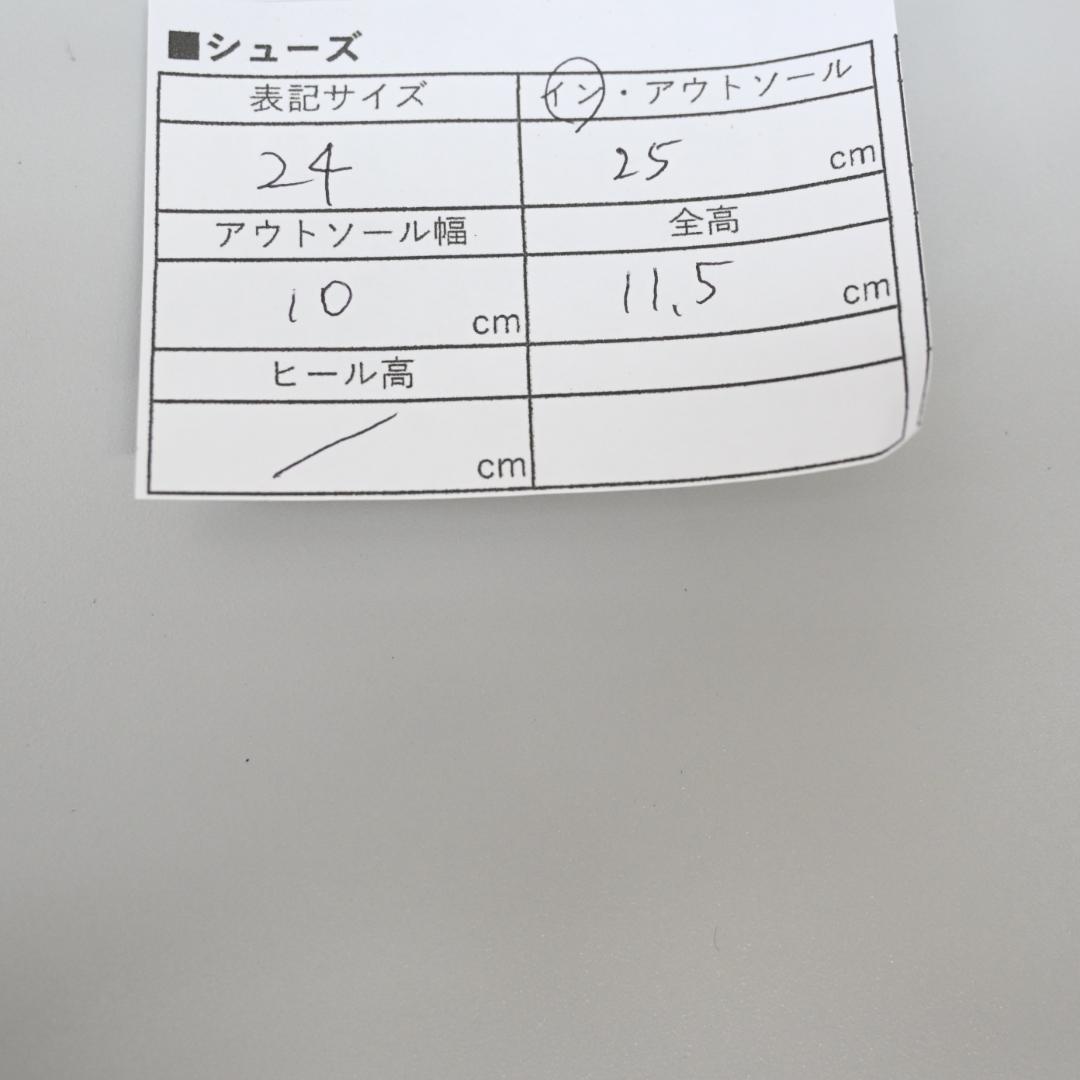 ■シューズ
表記サイズ イン・アウトソール
24 25 cm
アウトソール幅 全高
10 cm 11.5 cm
ヒール高
/ cm